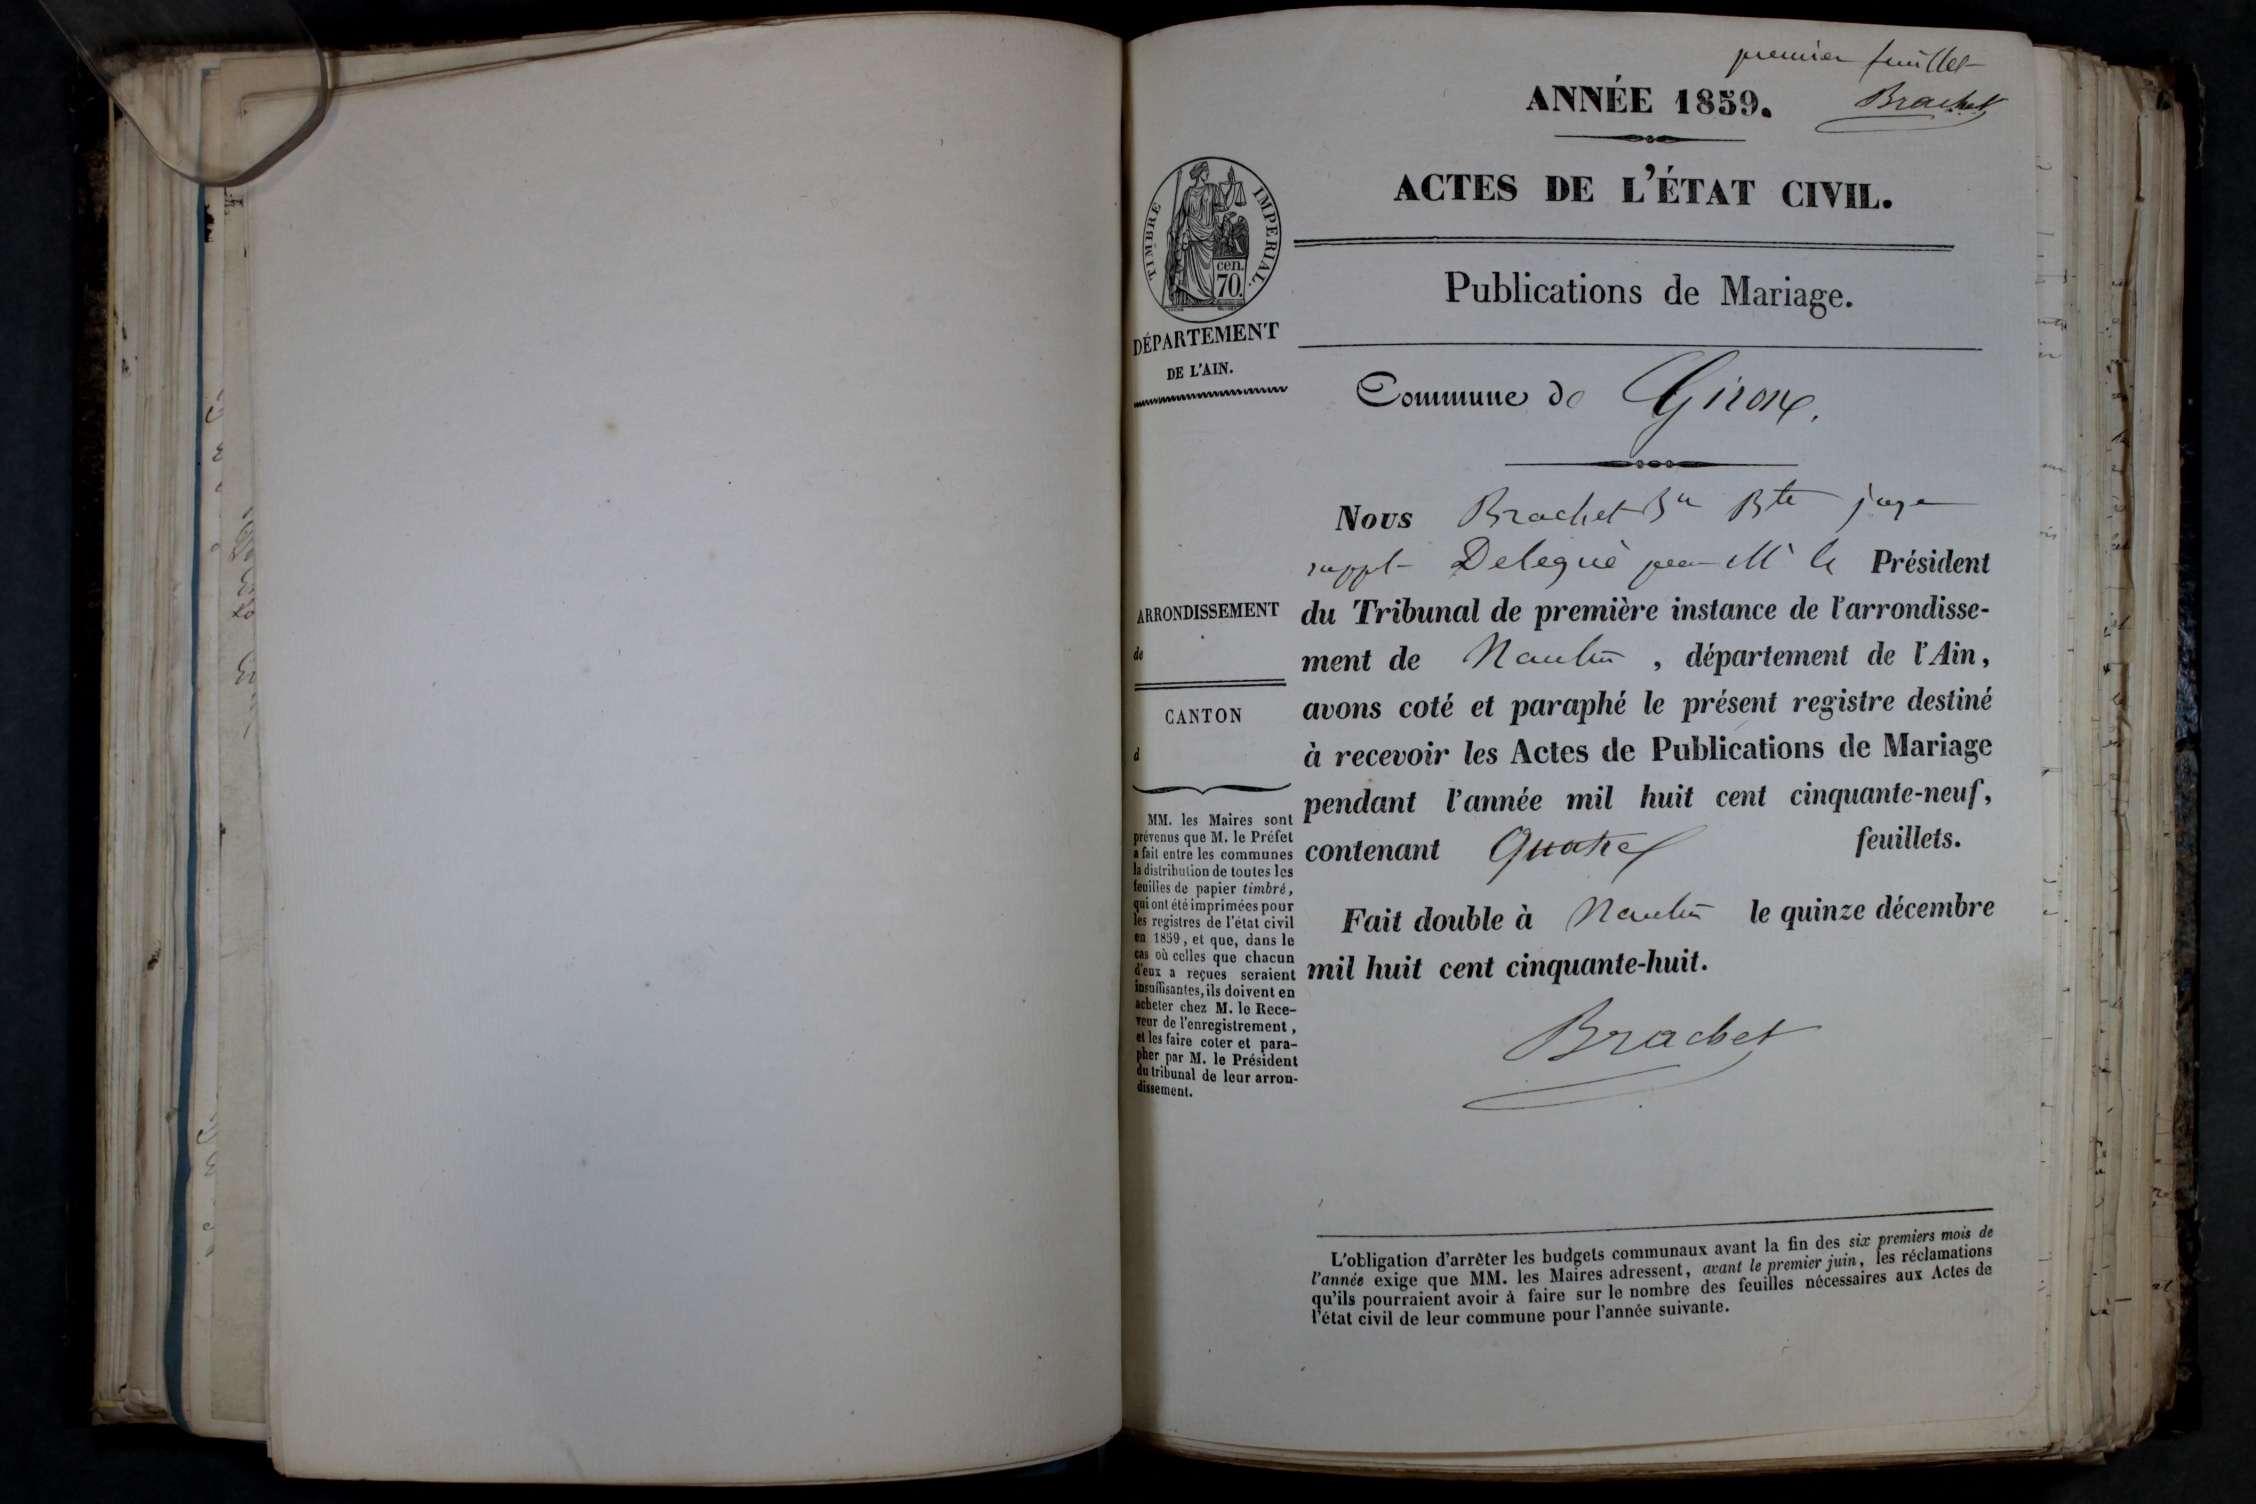 premier feuillet
Brachet
ANNÉE 1859.
ACTES DE L'ÉTAT CIVIL.
Publications de Mariage.
TIMBRE IMPERIAL.
cen.
70.
DÉPARTEMENT
DE L'AIN.
Commune de Giron.
ARRONDISSEMENT
de
CANTON
d
MM. les Maires sont
prévenus que M. le Préfet
a fait entre les communes
la distribution de toutes les
feuilles de papier timbré,
qui ont été imprimées pour
les registres de l'état civil
en 1859, et que, dans le
cas où celles que chacun
d'eux a reçues seraient
insuffisantes, ils doivent en
acheter chez M. le Rece-
veur de l'enregistrement,
et les faire coter et para-
pher par M. le Président
du tribunal de leur arron-
dissement.
Nous Brachet Bte juge
suppt Delegué par Mr le Président
du Tribunal de première instance de l'arrondisse-
ment de Nantua, département de l'Ain,
avons coté et paraphé le présent registre destiné
à recevoir les Actes de Publications de Mariage
pendant l'année mil huit cent cinquante-neuf,
contenant Quatre feuillets.
Fait double à Nantua le quinze décembre
mil huit cent cinquante-huit.
Brachet
L'obligation d'arrêter les budgets communaux avant la fin des six premiers mois de
l'année exige que MM. les Maires adressent, avant le premier juin, les réclamations
qu'ils pourraient avoir à faire sur le nombre des feuilles nécessaires aux Actes de
l'état civil de leur commune pour l'année suivante.